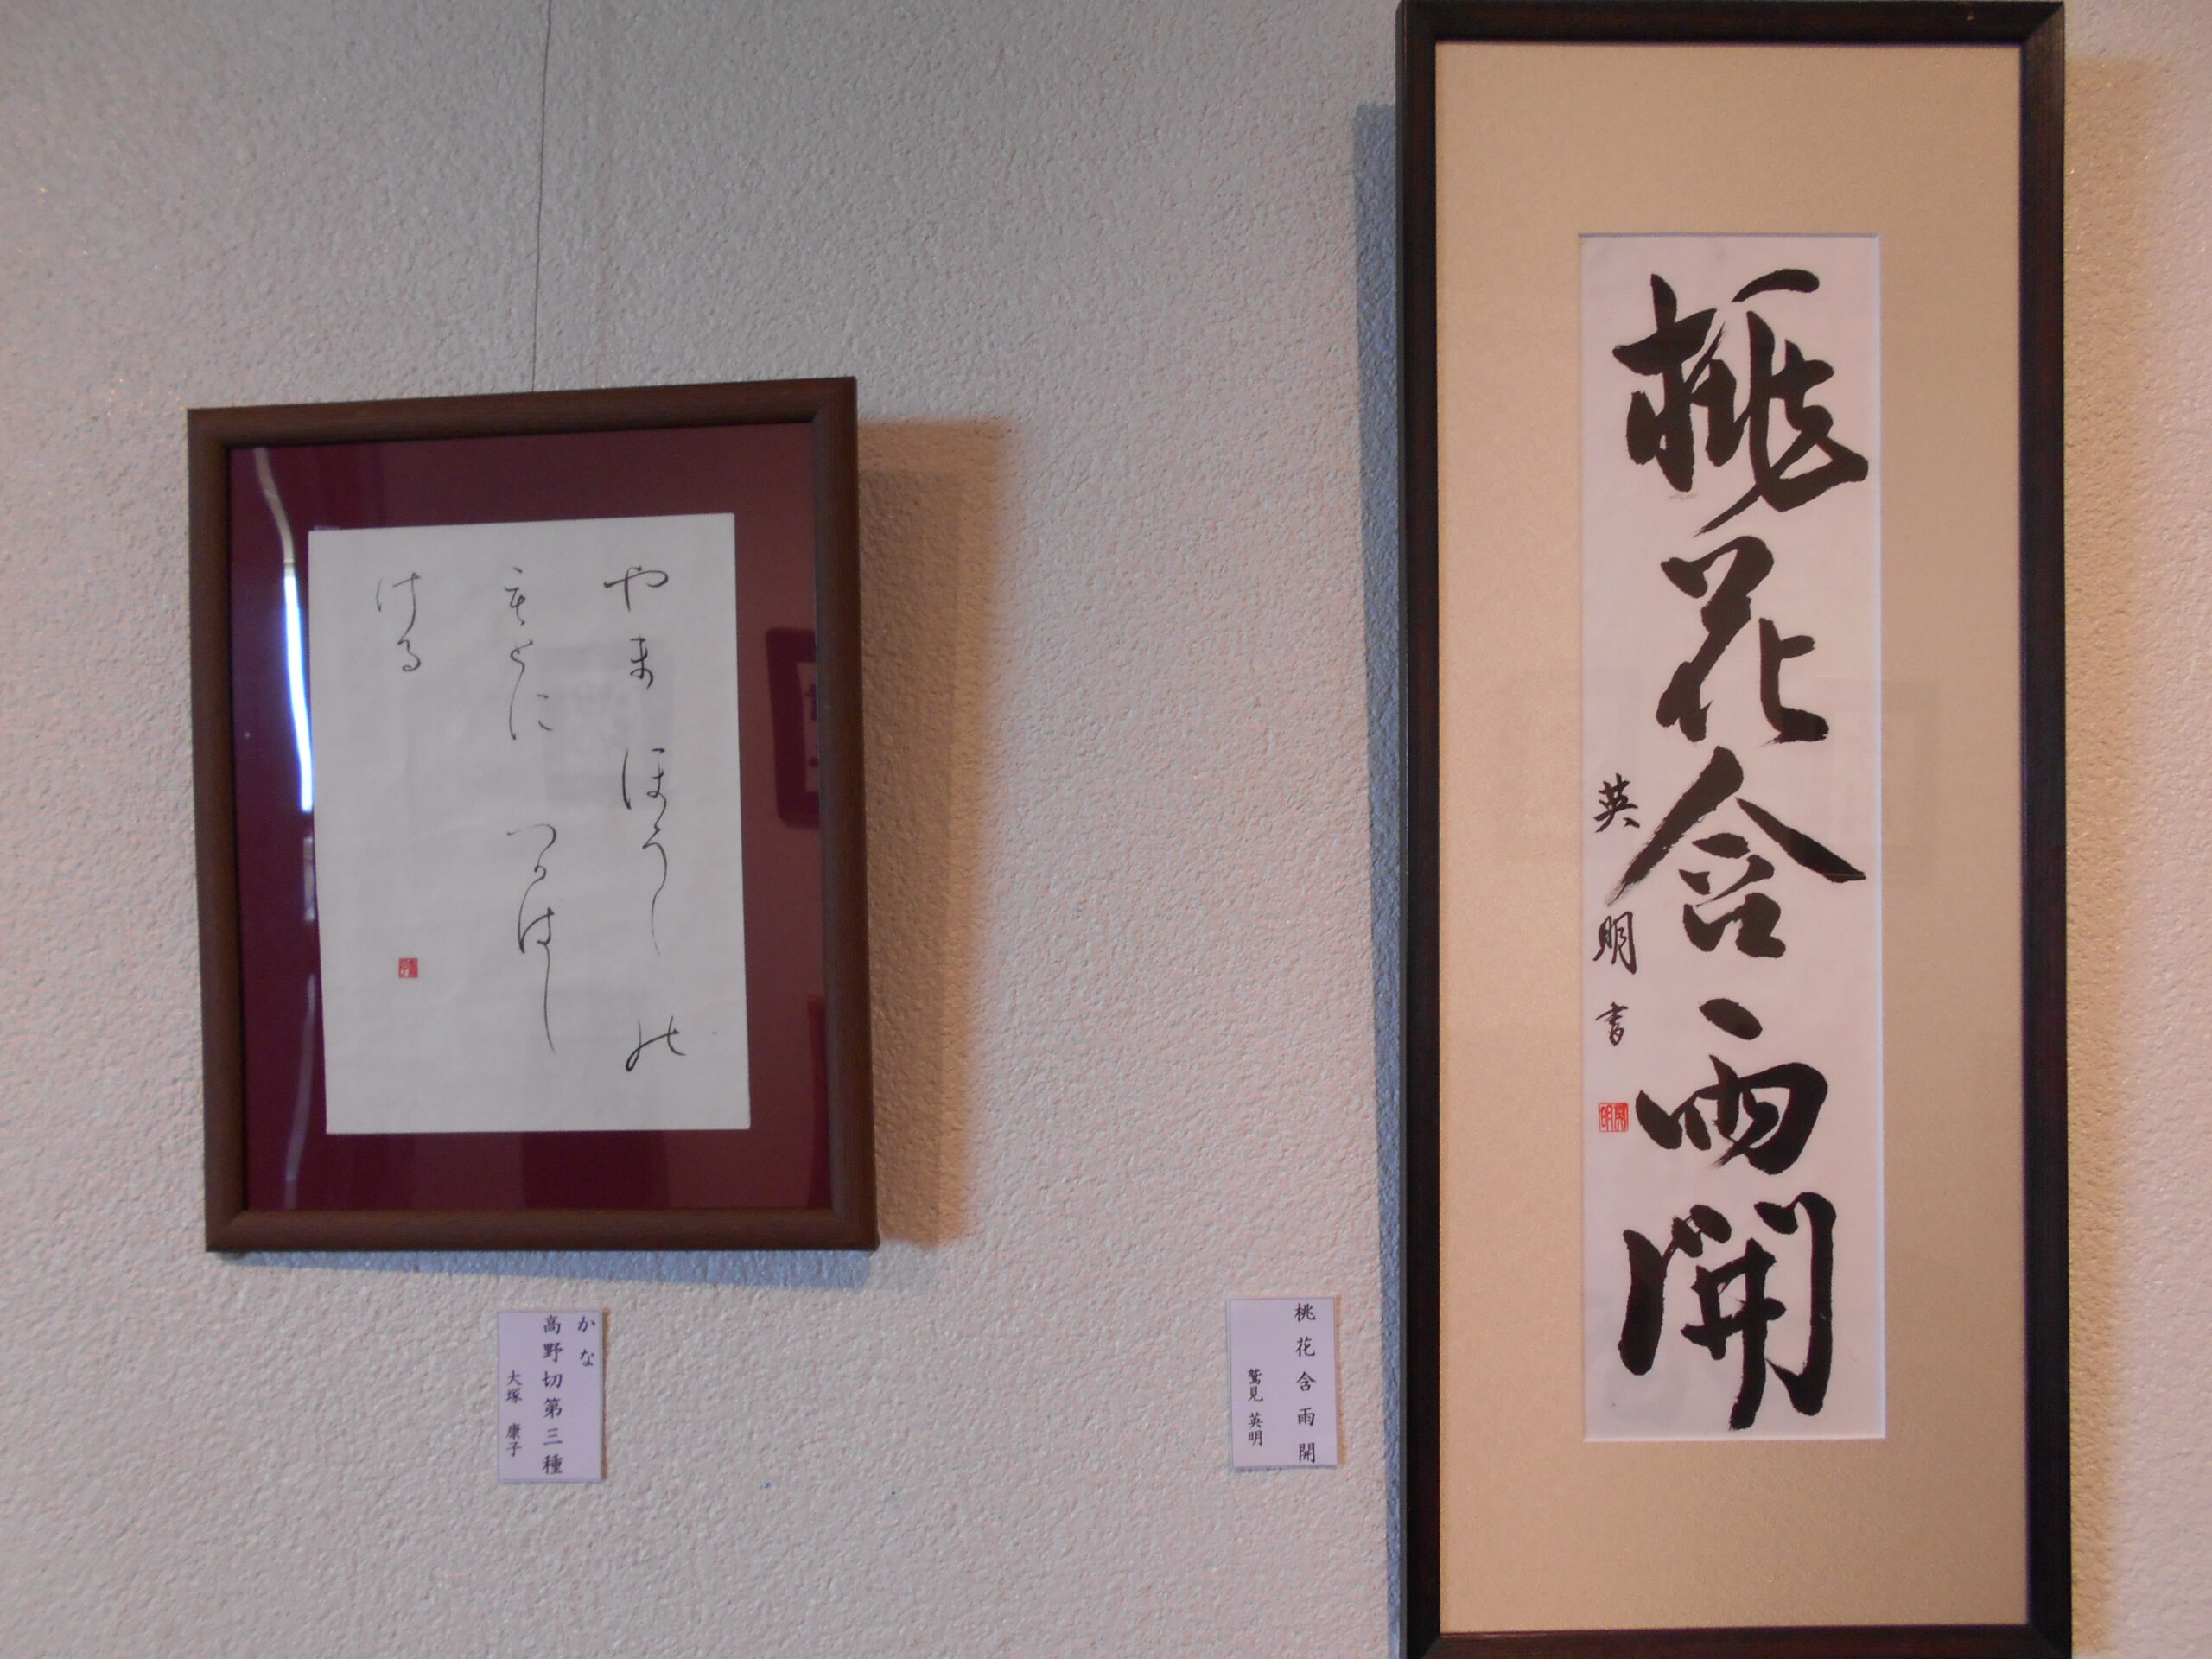 桃花含雨開
英明書
桃花含雨開
鷲見 英明
やまほうしの
もとにつかはし
ける
かな
高野切第三種
大塚 康子